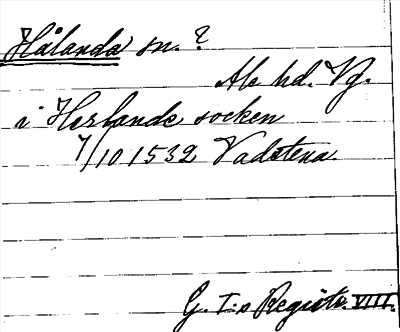 Hålanda sn. ?
Ale hd. Vg.
i Horlande socken
7/10 1532 Vadstena.
G. I:s Registr. VIII.